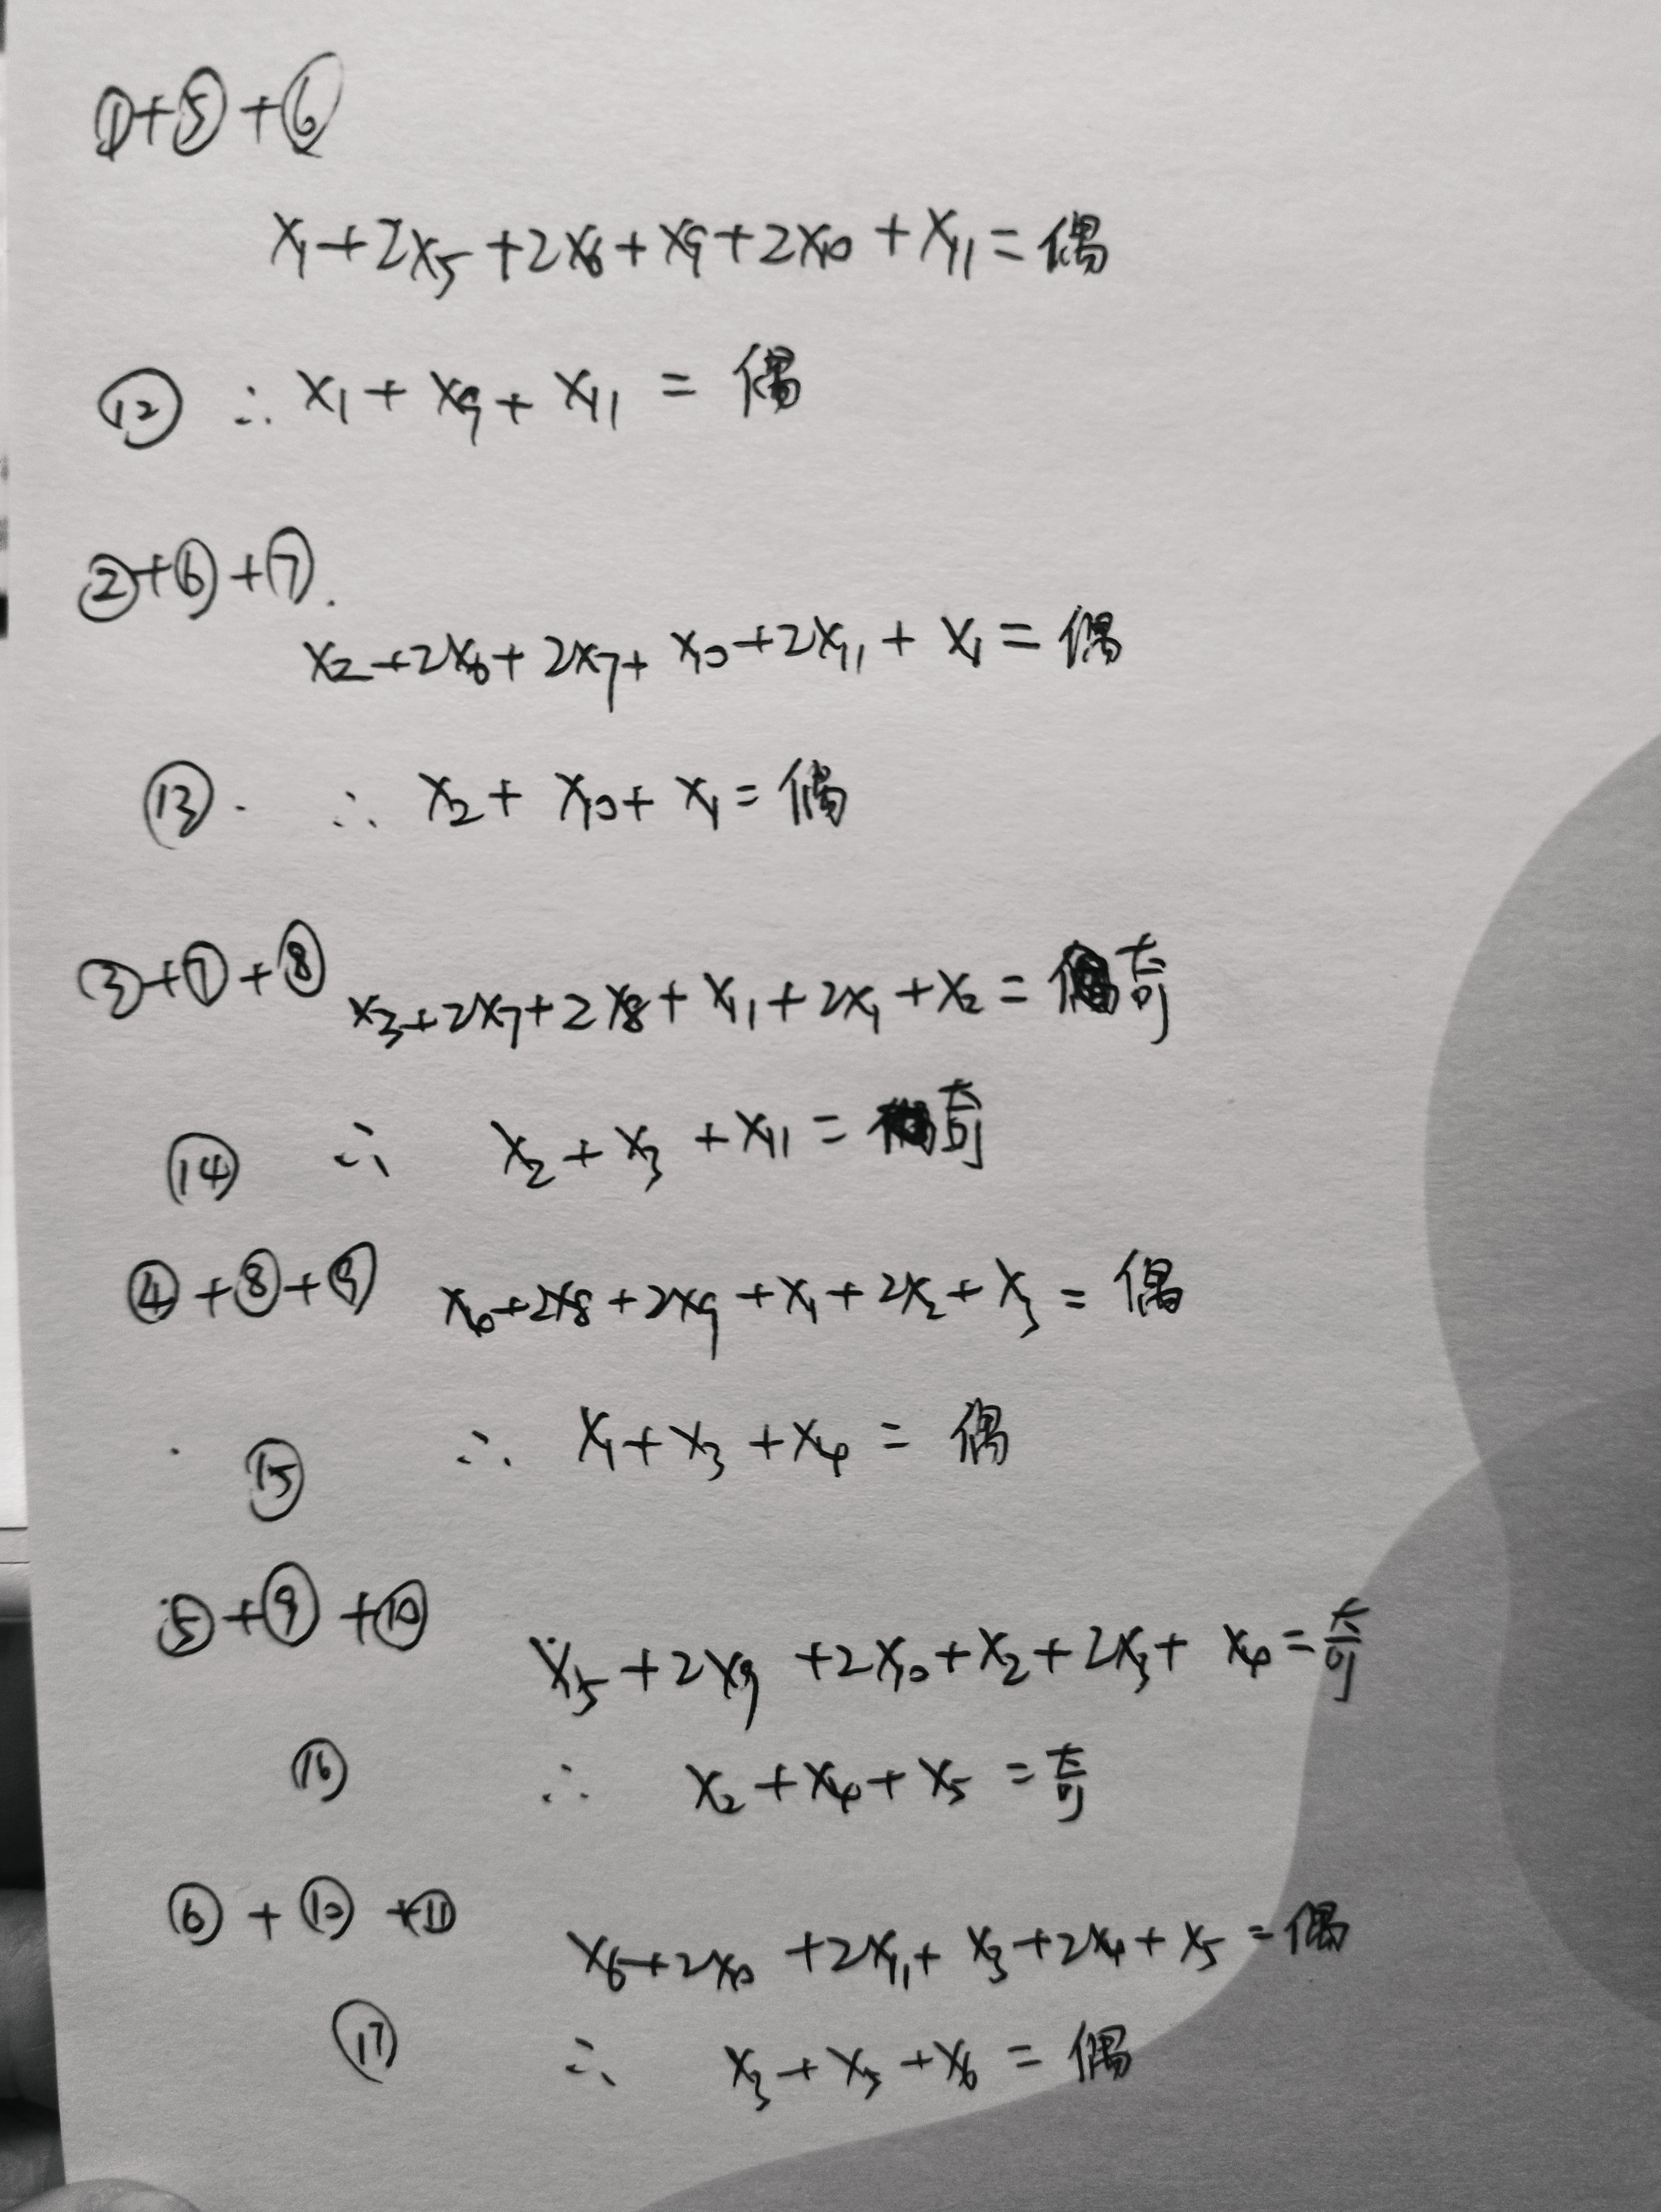 ①+⑤+⑥
x₁+2x₅+2x₆+x₉+2x₁₀+x₁₁=偶
⑫ ∴ x₁+x₉+x₁₁=偶
②+⑥+⑦.
x₂+2x₆+2x₇+x₁₀+2x₁₁+x₁=偶
⑬. ∴ x₂+x₁₀+x₁=偶
③+⑦+⑧ x₃+2x₇+2x₈+x₁₁+2x₁+x₂=奇
⑭ ∴ x₂+x₃+x₁₁=奇
④+⑧+⑨ x₄+2x₈+2x₉+x₁+2x₂+x₃=偶
⑮ ∴ x₁+x₃+x₄=偶
⑤+⑨+⑩
x₅+2x₉+2x₁₀+x₂+2x₃+x₄=奇
⑯ ∴ x₂+x₄+x₅=奇
⑥+⑩+⑪
x₆+2x₁₀+2x₁₁+x₃+2x₄+x₅=偶
⑰ ∴ x₃+x₅+x₆=偶